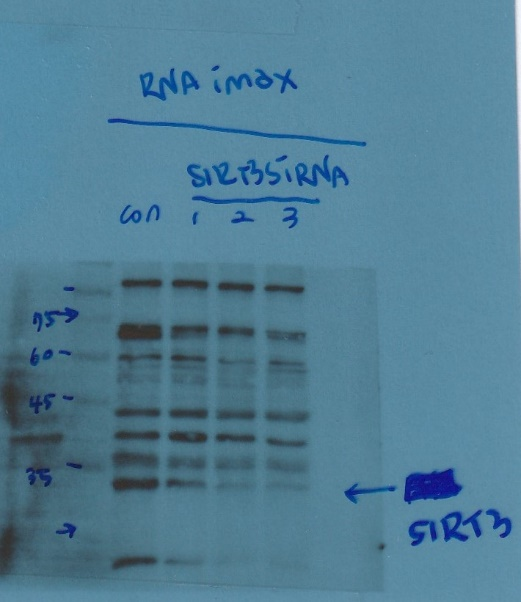 RNA imax
SIRT3 siRNA
con 1 2 3
75
60
45
35
SIRT3